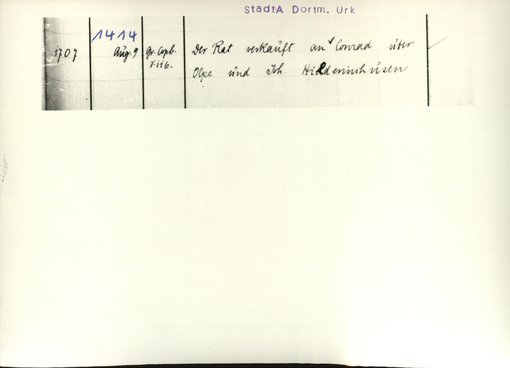 StadtA Dortm. Urk
1414
1707 Aug. 9 Gr. Copb. Der Rat verkauft an Conrad über
I 116. Olpe und Joh. Hilderinchusen